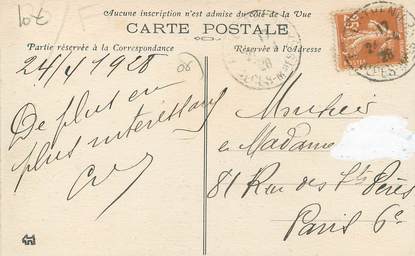 Aucune inscription n'est admise du côté de la Vue
CARTE POSTALE
Partie réservée à la Correspondance
Réservée à l'Adresse
24/4/1928
De plus en
plus intéressant
Monsieur
et Madame
81 Rue des Sts Pères
Paris 6e